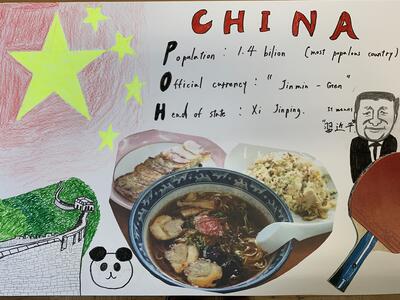 CHINA
Population : 1.4 bilion (most populous country)
Official currency : "Jinmin - Gen"
Head of state : Xi Jinping. It means
"習近平"